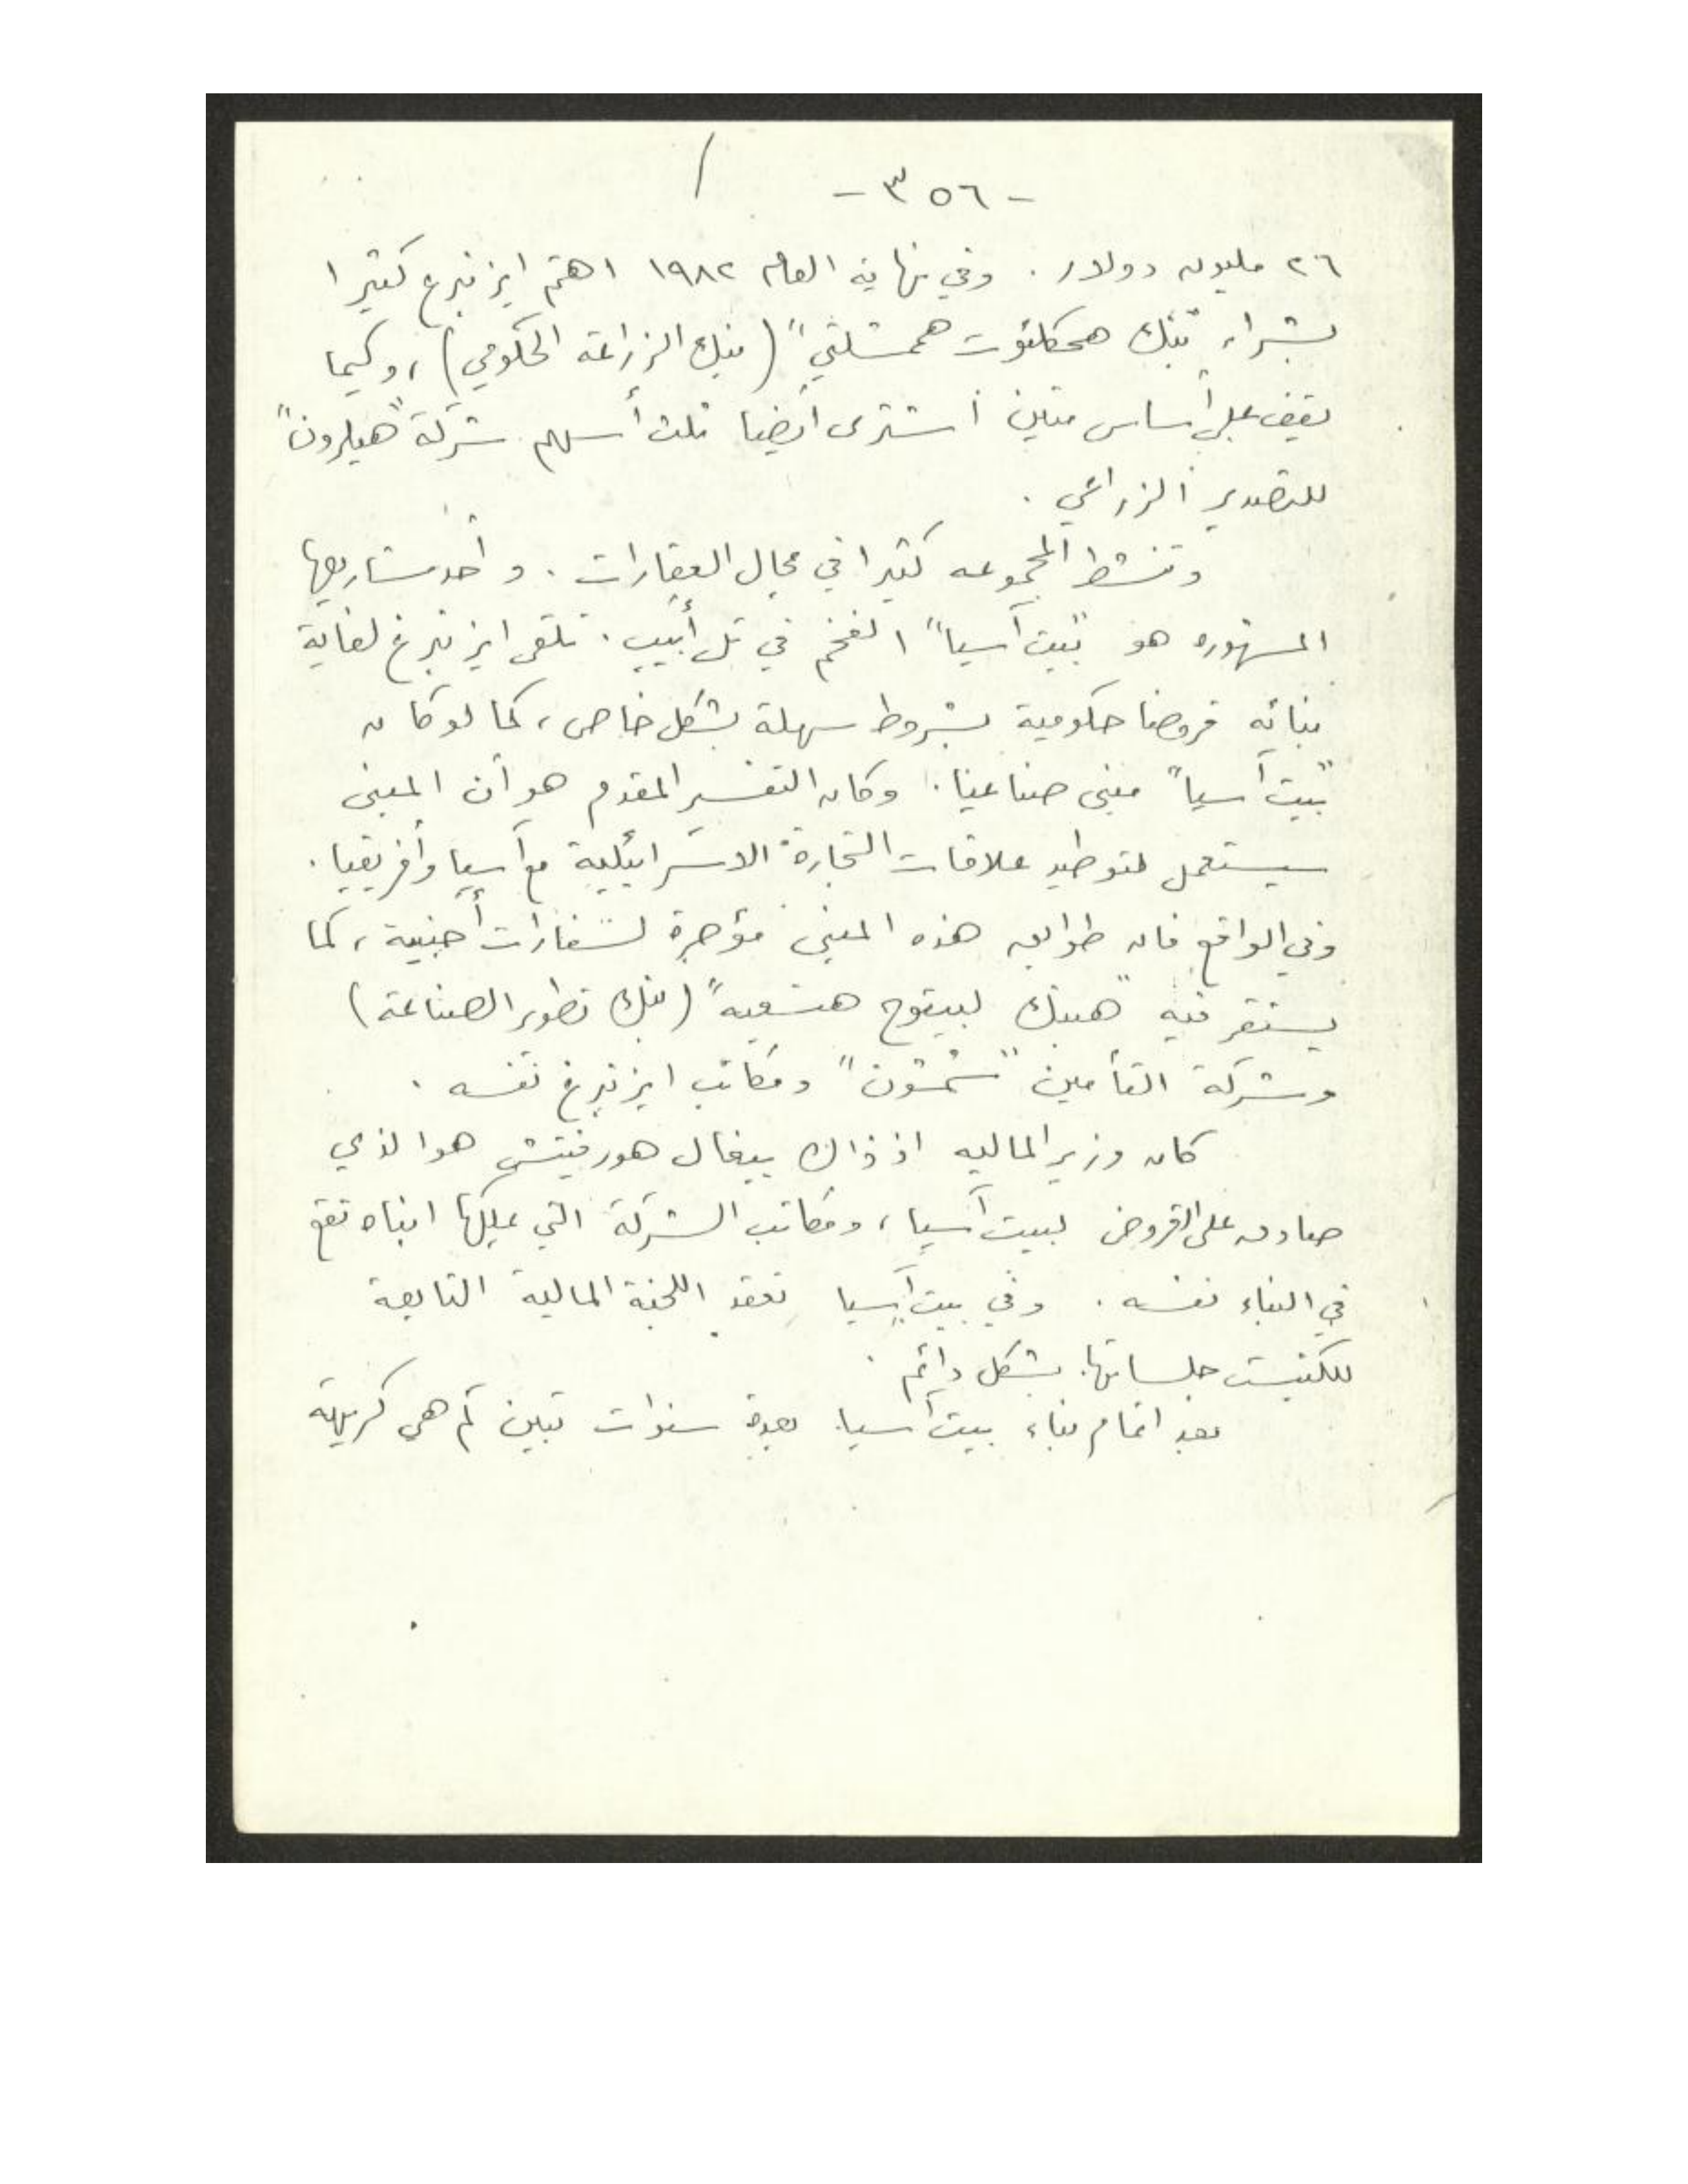 - ٣٥٦ -
٢٦ مليون دولار . وفي نهاية العام ١٩٨٢ اهتم ايزنبرغ كثيرا
بشراء "بنك هحكلئوت هممشلتي" (بنك الزراعة الحكومي) ، وكيما
يقف على أساس متين اشترى أيضا ثلث أسهم شركة "هيلرون"
للتصدير الزراعي .
وتنشط المجموعه كثيرا في مجال العقارات . وأحد مشاريعها
المشهوره هو "بيت آسيا" الفخم في تل أبيب . تلقى ايزنبرغ لغاية
بنائه قروضا حكومية بشروط سهلة بشكل خاص ، كما لو كان
"بيت آسيا" مبنى صناعيا . وكان التفسير المقدم هو أن المبنى
سيستعمل لتوطيد علاقات التجارة الاسرائيلية مع آسيا وأفريقيا .
وفي الواقع فان طوابق هذه المبنى مؤجرة لسفارات أجنبية ، كما
يستقر فيه "هبنك لبيتوح هتسعيه" (بنك تطوير الصناعة)
وشركة التأمين "شمشون" ومكاتب ايزنبرغ نفسه .
كان وزير الماليه اذ ذاك ييغال هورفيتش هو الذي
صادق على القروض لبيت آسيا ، ومكاتب الشركة التي يملكها ابناه تقع
في البناء نفسه . وفي بيت آسيا تعقد اللجنة المالية التابعة
للكنيست جلساتها بشكل دائم .
بعد اتمام بناء بيت آسيا بعدة سنوات تبين كم هي كريهة